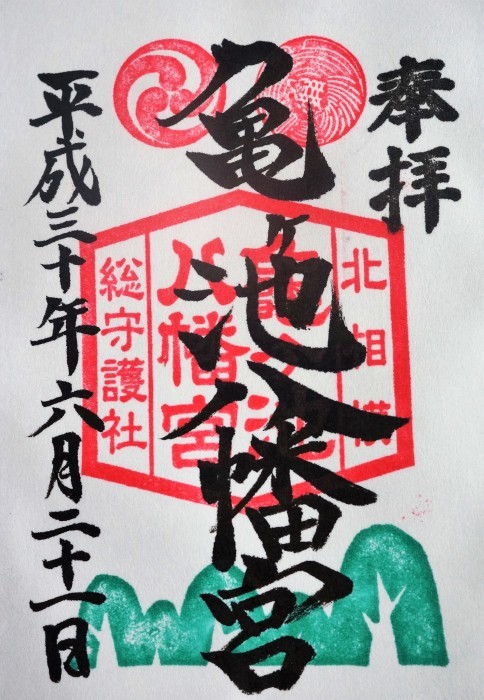 奉拝
亀ヶ池八幡宮
平成三十年六月二十一日
北相模
亀ヶ池
八幡宮
総守護社